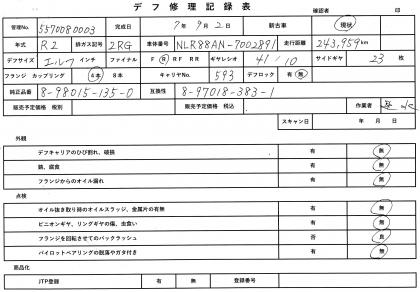 デフ修理記録表
確認者 印
管理No. 5570080003 完成日 7年 9月 2日 新古車 現状
年式 R2 排ガス記号 2RG 車体番号 NLR88AN-7002891 走行距離 243,959km
デフサイズ エルフ インチ ファイナル F R RF RR ギヤレシオ 41/10 サイドギヤ 23 枚
フランジ カップリング 4本 8本 キャリヤNo. 593 デフロック 有 無
純正品番 8-98015-135-0 互換性 8-97018-383-1
販売予定価格 税別 販売予定価格 税込 作業者
スキャン日 年 月 日
外観
デフキャリアのひび割れ、破損 有 無
錆、腐食 有 無
フランジからのオイル漏れ 有 無
点検
オイル抜き取り時のオイルスラッジ、金属片の有無 有 無
ピニオンギヤ、リングギヤの傷、虫食い 有 無
フランジを回転させてのバックラッシュ 否 良
パイロットベアリングの脱落やガタ付き 有 無
商品化
JTP登録 有 無 登録番号